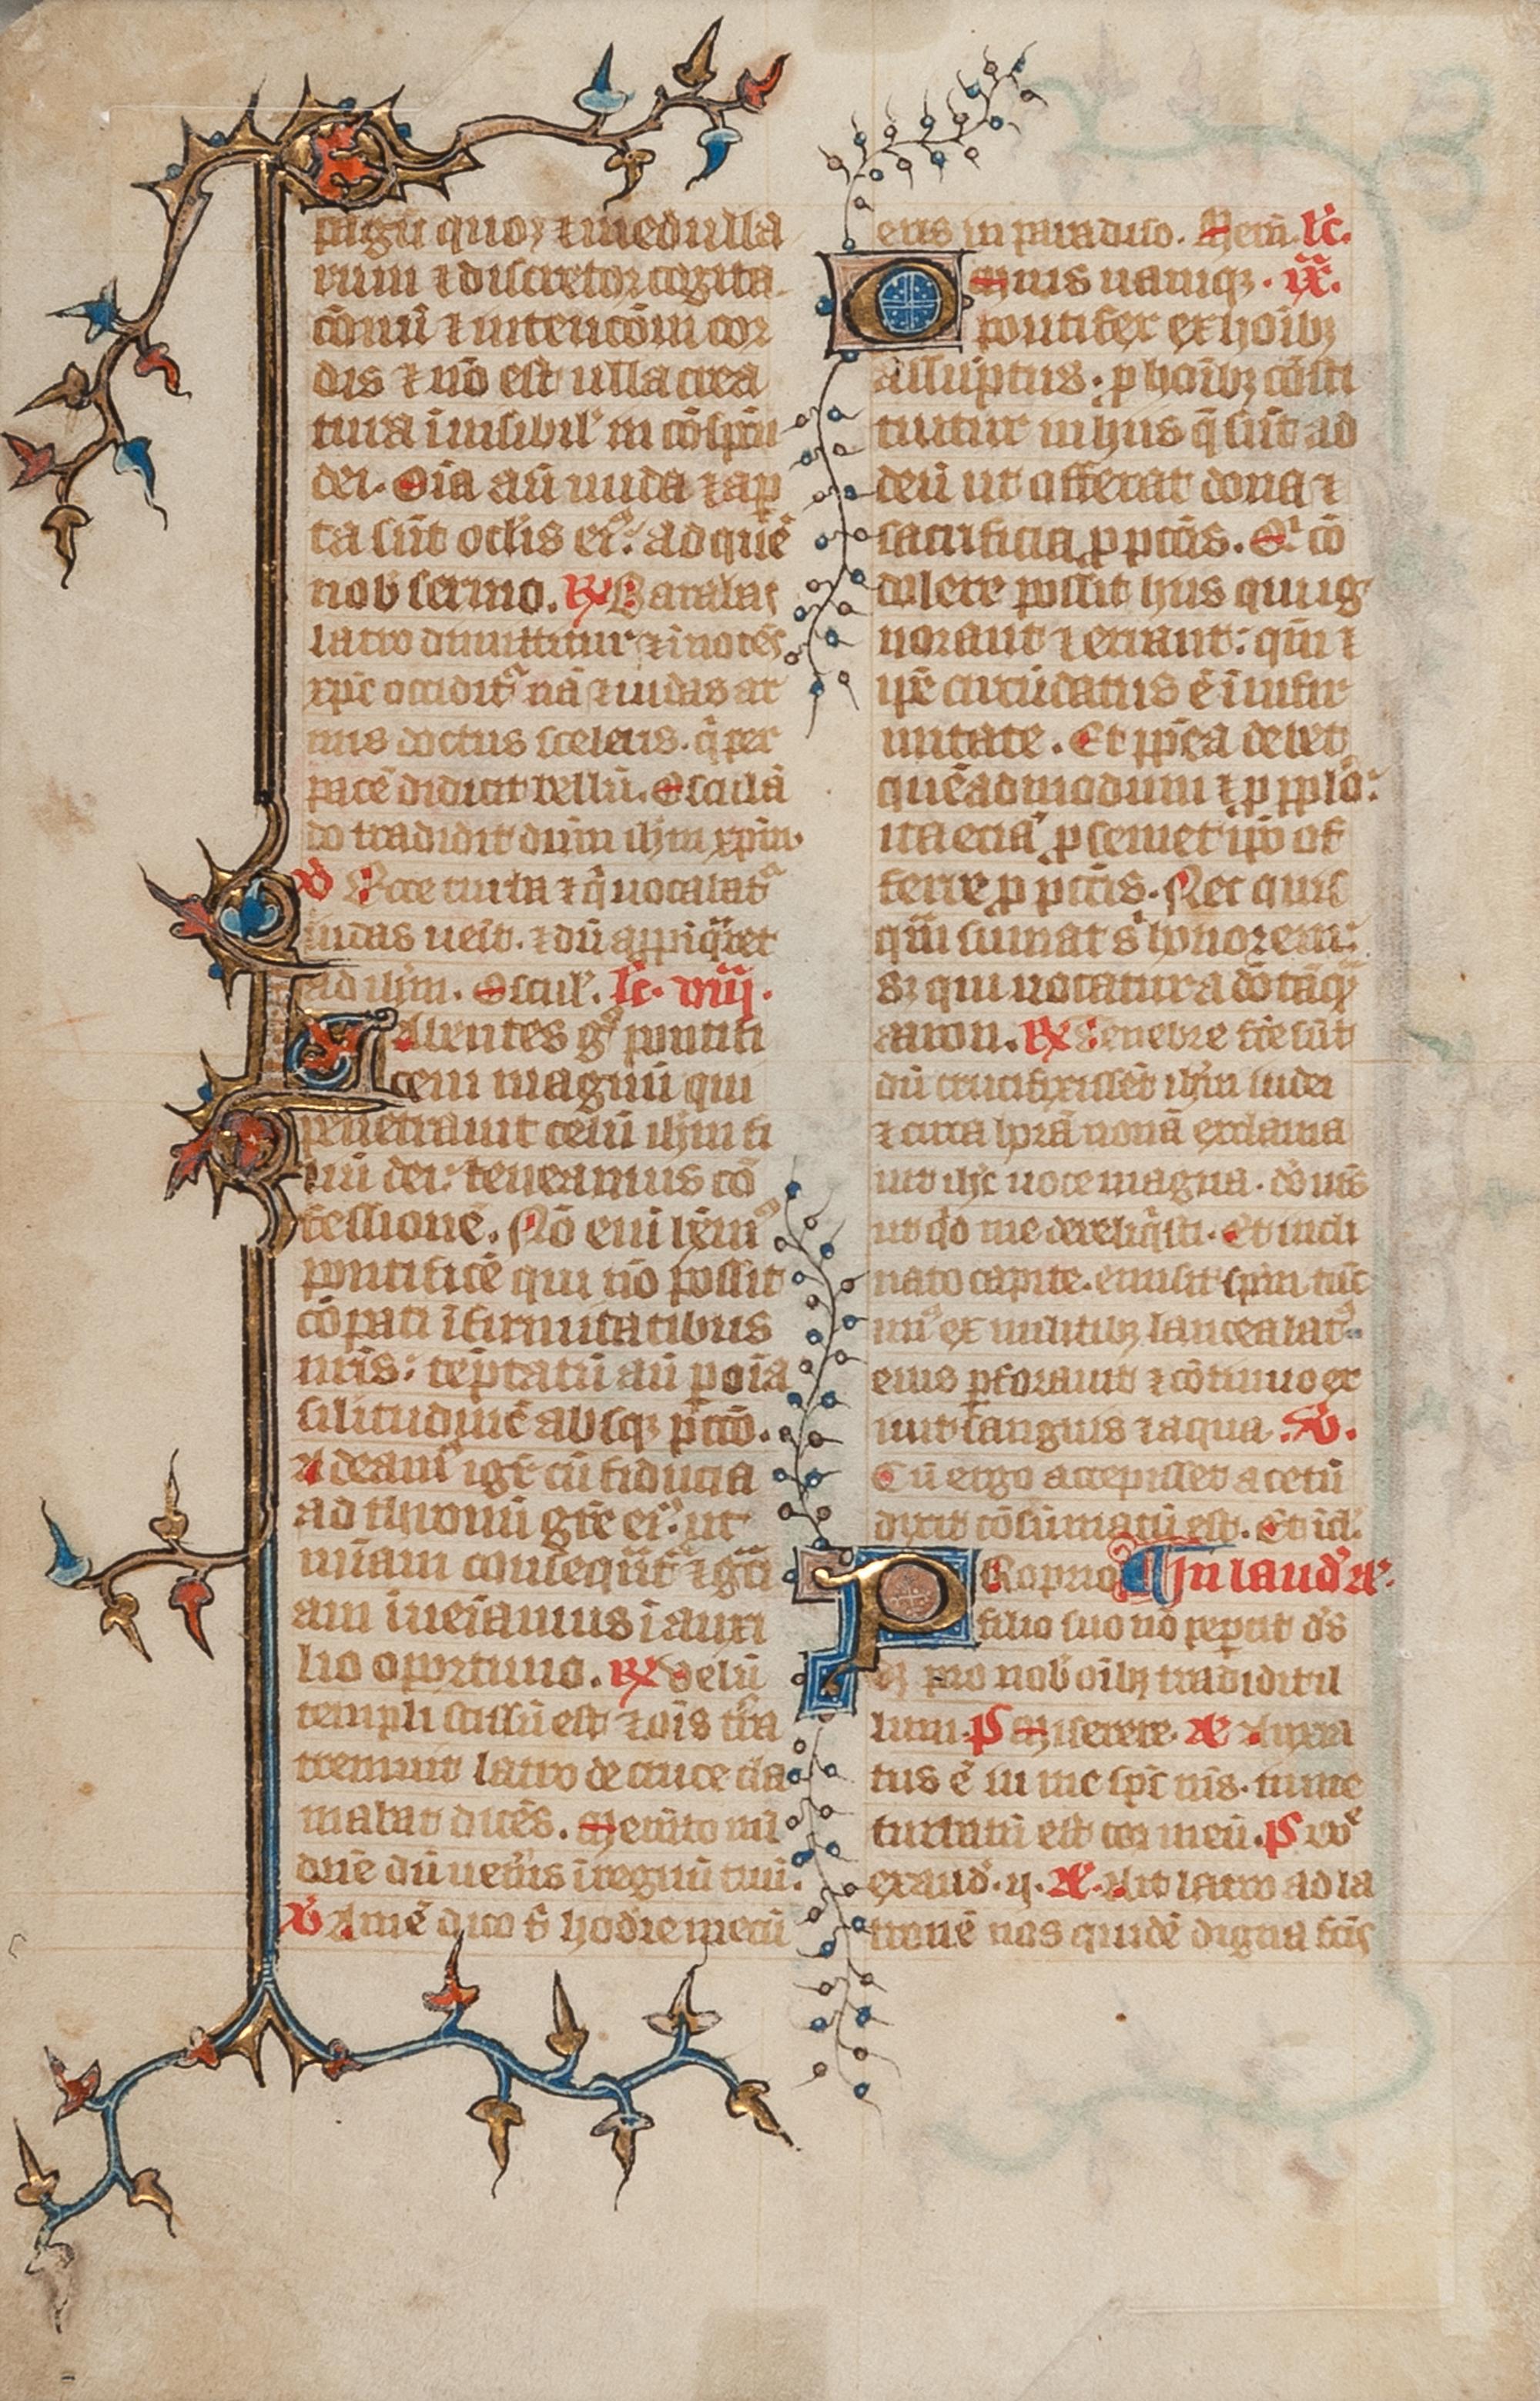 pagū quoꝫ ⁊ medulla
rum ⁊ discretor cogita
cōnū ⁊ intencōnū cor
dis ⁊ nō est ulla crea
tura īuisibil' in cōspū
dei. Oīa aū nuda ⁊ ap
ta sūt oclis eiꝰ: ad quē
nob sermo. ℟ Barabas
latro dimittitur ⁊ īnocēs
xp̄c occidit' nā ⁊ iudas ar
mis doctus sceleris. q̇ per
pacē didicit bellū. Osculā
do tradidit dūm ihm xpm.
℣ Ecce turba ⁊ q̇ uocabat'
iudas ueīt. ⁊ dū appīq̄ret
ad ihm. Oscul'. lc. viij.
Abentes gͦ pontifi
cem magnū qui
penetrauit celū ihm fi
liū dei: teneamus cō
fessionē. Nō eni hēmꝰ
pontificē qui nō possit
cōpati īfirmitatibus
nr̄is: tēptatū aū p oīa
silitudinē absqꝫ pccō.
Adeamꝰ igr̄ cū fiducia
ad thronū gr̄e eiꝰ: ut
mīam consequāt' ⁊ gr̄ci
am īueiamus ī auxi
lio oportuno. ℟ Uelū
templi scissū est ⁊ oīs tr̄ra
tremuit latro de cruce cla
mabat dicēs. Memto mī
dn̄e dū uen̄is ī regnū tuū.
℣ Amē dico t' hodie mecū
eris in paradiso. Mem. lc.
Mnis namqꝫ. ix.
pontifex ex hoībꝫ
assūptus: p hoībꝫ cōsti
tuitur in hiis q̄ sūt ad
deū ut offerat dona ⁊
sacrificia p pccīs. Qͥ cō
dolere possit hiis qui ig
norant ⁊ errant: qm̄ ⁊
ip̄e circūdatus ē īnfir
mitate. Et pp̄ea debet
quēadmodum ⁊ p pplo:
ita ecia p semet ip̄o of
ferre p pccīs. Nec quis
q̄m sumat sͥ honorem:
sꝫ qui uocatur a dō tāq̄
aaron. ℟ Tenebre fc̄e sūt
dū crucifixissēt ihm iudei
⁊ circa horā nonā exclama
uit ihc uoce magna. dē mꝰ
ut qͥd me dereliq̄sti. Et incli
nato capite. emisit spm tūc
unꝰ ex militibꝫ lancea latꝰ
eius pforauit ⁊ cōtinuo ex
iuit sanguis ⁊ aqua. ℣.
Cū ergo accepisset acetū
dixit cōsumatū est. Et īcl'.
Roprio In laud' a͞e.
filio suo nō pepcit d's
sꝫ pro nob oībꝫ tradidit il
lum. p̄s Miserere. a͞e Anxia
tus ē in me spc̄ ms. in me
turbatū est cor meū. p̄s Dn̄e
exaud'. ij. a͞e. Ait latro ad la
tronē nos quidē digna fcīs